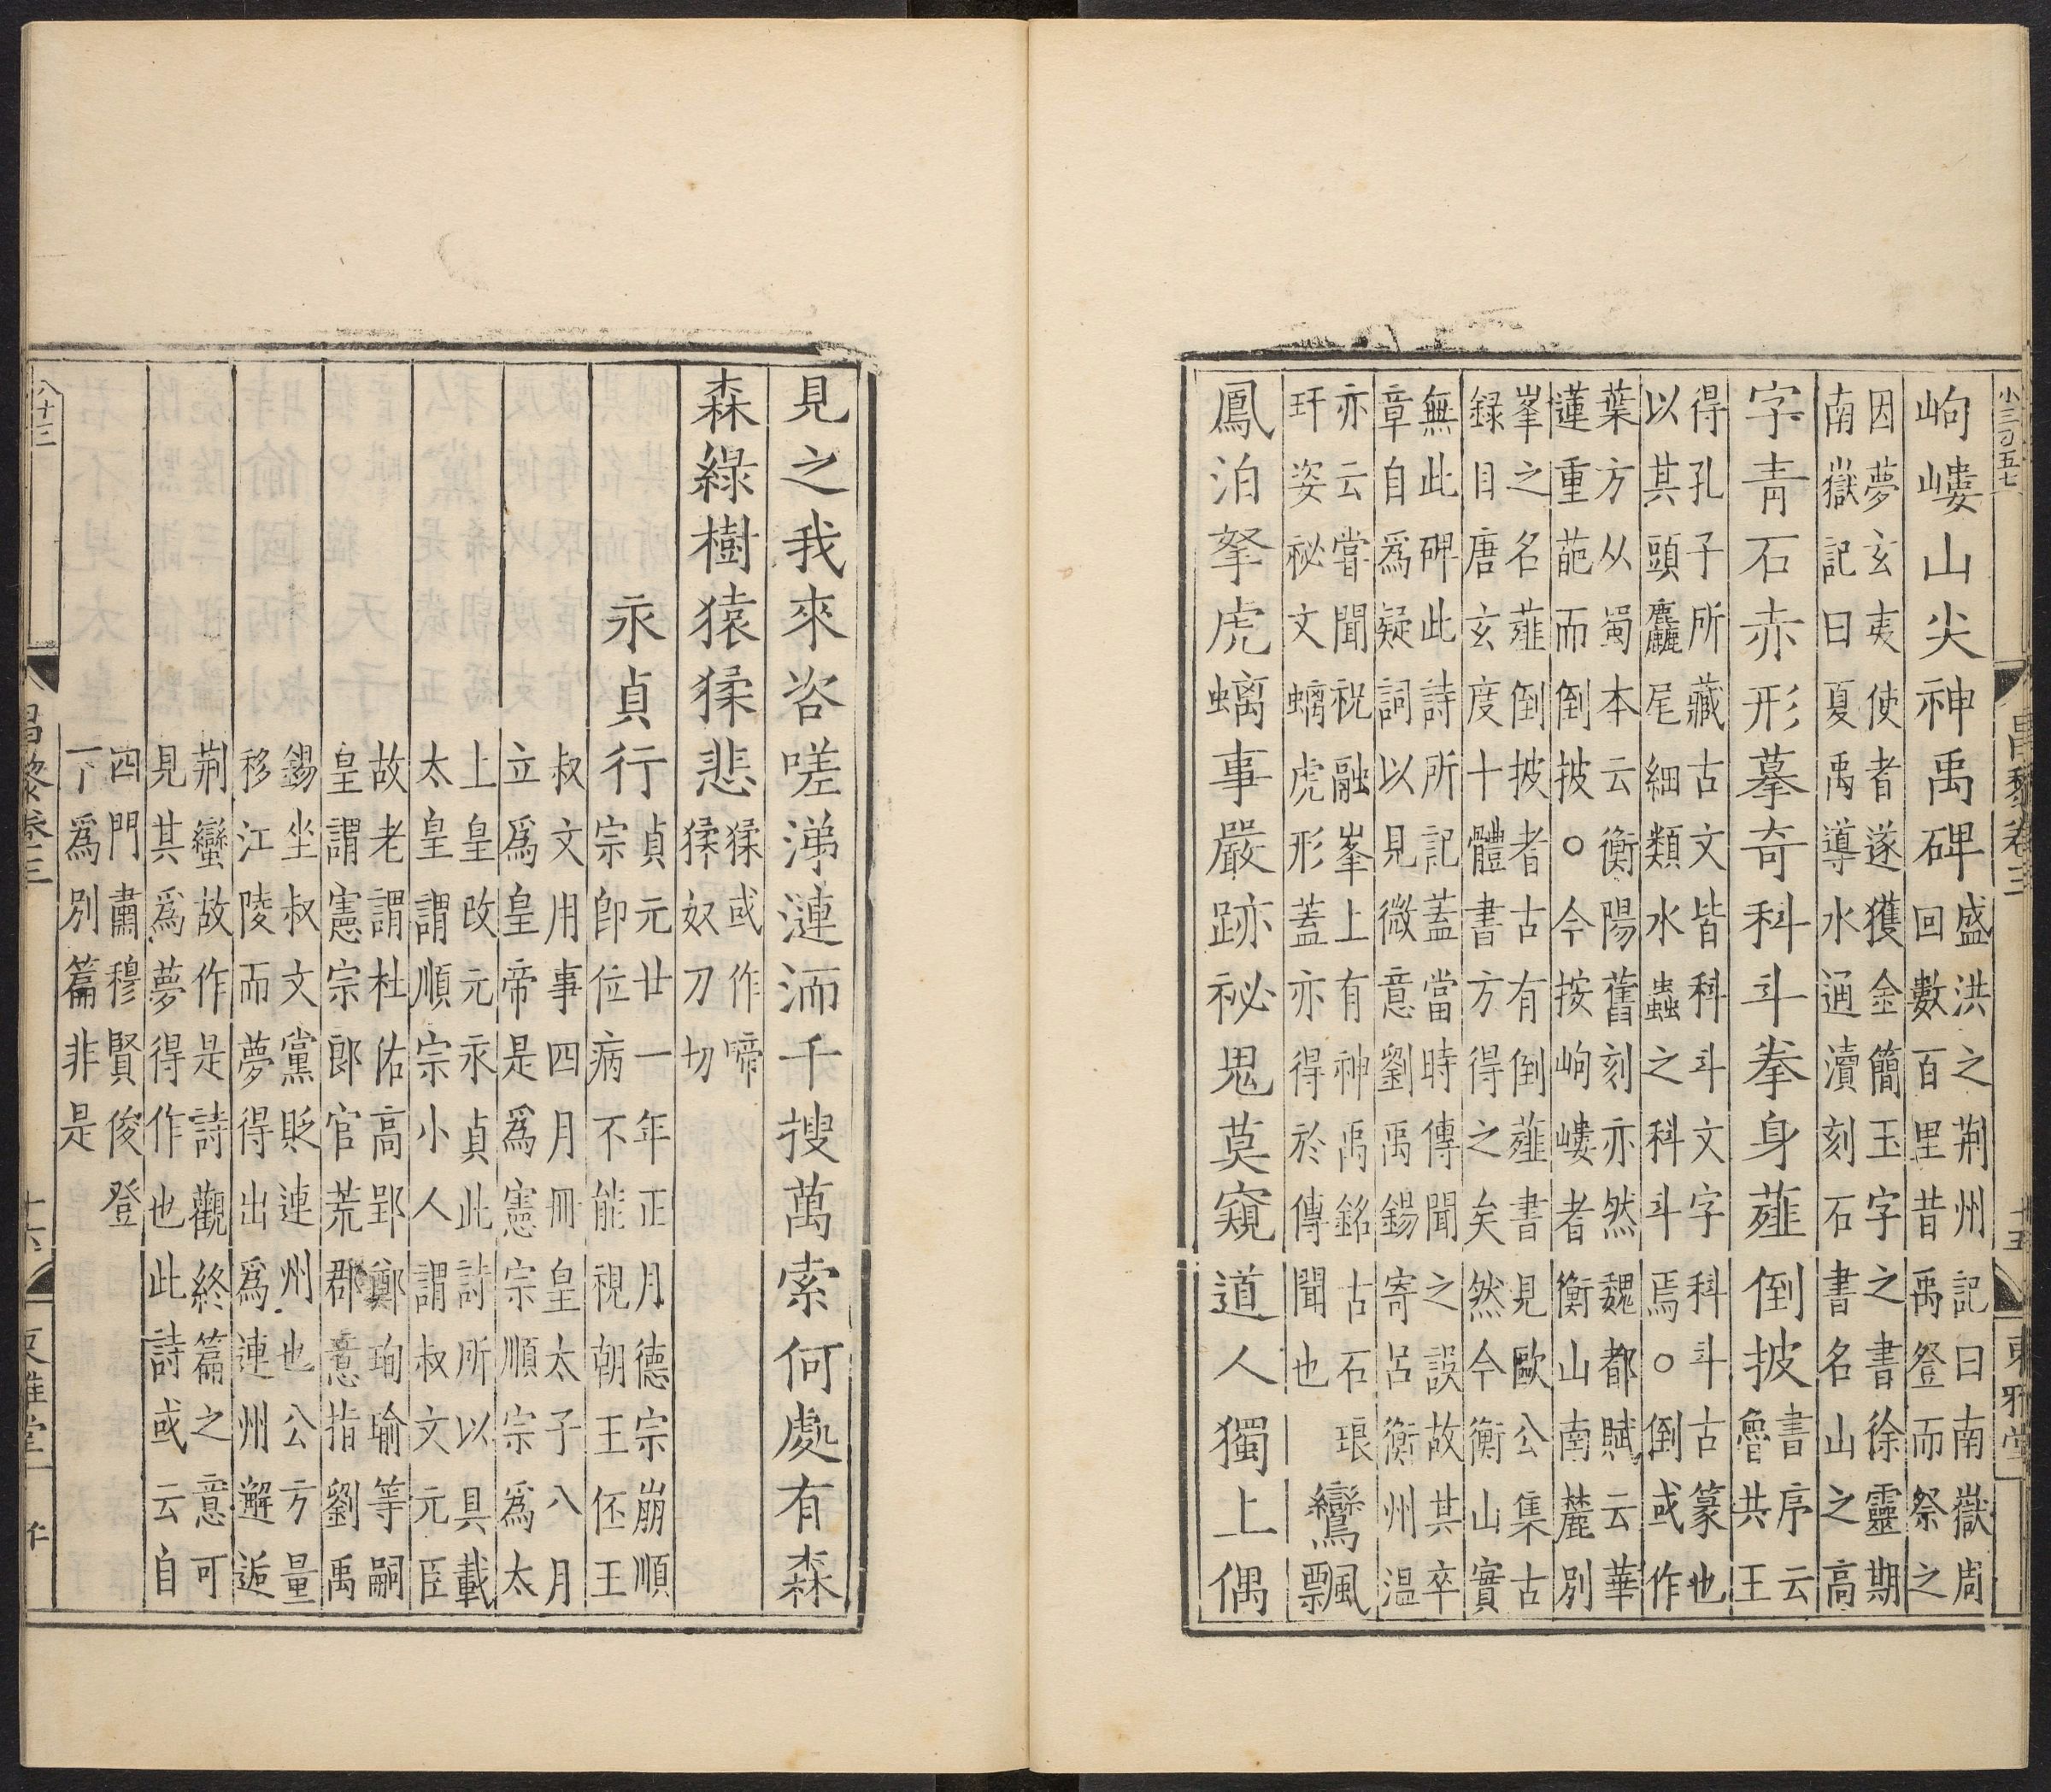 小三丁五七 昌黎卷三 十五 東雅堂
岣嶁山尖神禹碑
盛洪之荆州記曰南嶽周
回數百里昔禹登而祭之
因夢玄夷使者遂獲金簡玉字之書徐靈期
南嶽記曰夏禹導水通瀆刻石書名山之高
字青石赤形摹奇科斗拳身薤倒披
書序云
魯共王
得孔子所藏古文皆科斗文字科斗古篆也
以其頭麤尾細類水蟲之科斗焉○倒或作
葉方从蜀本云衡陽舊刻亦然魏都賦云華
蓮重葩而倒披○今按岣嶁者衡山南麓別
峯之名薤倒披者古有倒薤書見歐公集古
録目唐玄度十體書方得之矣然今衡山實
無此碑此詩所記蓋當時傳聞之誤故其卒
章自爲疑詞以見微意劉禹錫寄呂衡州温
亦云嘗聞祝融峯上有神禹銘古石琅
玕姿祕文螭虎形蓋亦得於傳聞也
鸞飄
鳳泊拏虎螭事嚴跡祕鬼莫窺道人獨上偶
見之我來咨嗟涕漣洏千搜萬索何處有森
森綠樹猿猱悲
猱或作啼
猱奴刀切
永貞行
貞元廿一年正月德宗崩順
宗卽位病不能視朝王伾王
叔文用事四月冊皇太子八月
立爲皇帝是爲憲宗順宗爲太
上皇改元永貞此詩所以具載
太皇謂順宗小人謂叔文元臣
故老謂杜佑高郢鄭珣瑜等嗣
皇謂憲宗郎官荒郡意指劉禹
錫坐叔文黨貶連州也公方量
移江陵而夢得出爲連州邂逅
荆蠻故作是詩觀終篇之意可
見其爲夢得作也此詩或云自
四門肅穆賢俊登
一下爲別篇非是
八十三 昌黎卷三 十六 東雅堂